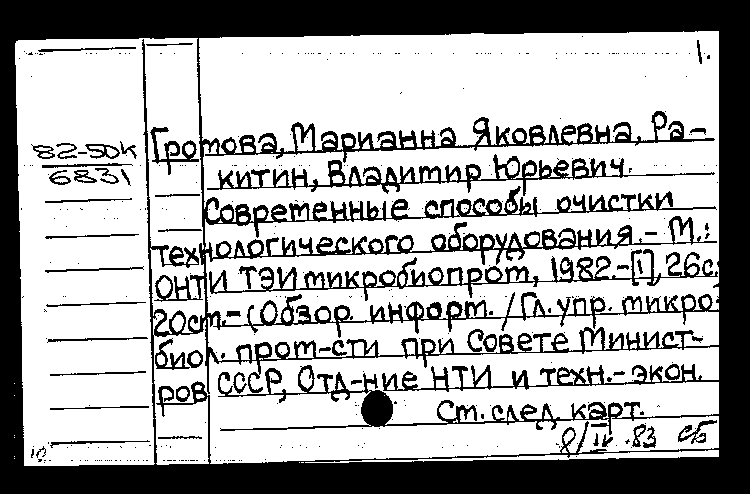 1.
82-50к
6831
Громова, Марианна Яковлевна, Ра-
китин, Владимир Юрьевич.
Современные способы очистки
технологического оборудования. - М.:
ОНТИ ТЭИмикробиопром, 1982.-[1], 26с.
20см.-(Обзор. информ. / Гл. упр. микро-
биол. пром-сти при Совете Минист-
ров СССР, Отд-ние НТИ и техн.-экон.
См. след. карт.
8/IV.83 СБ
10